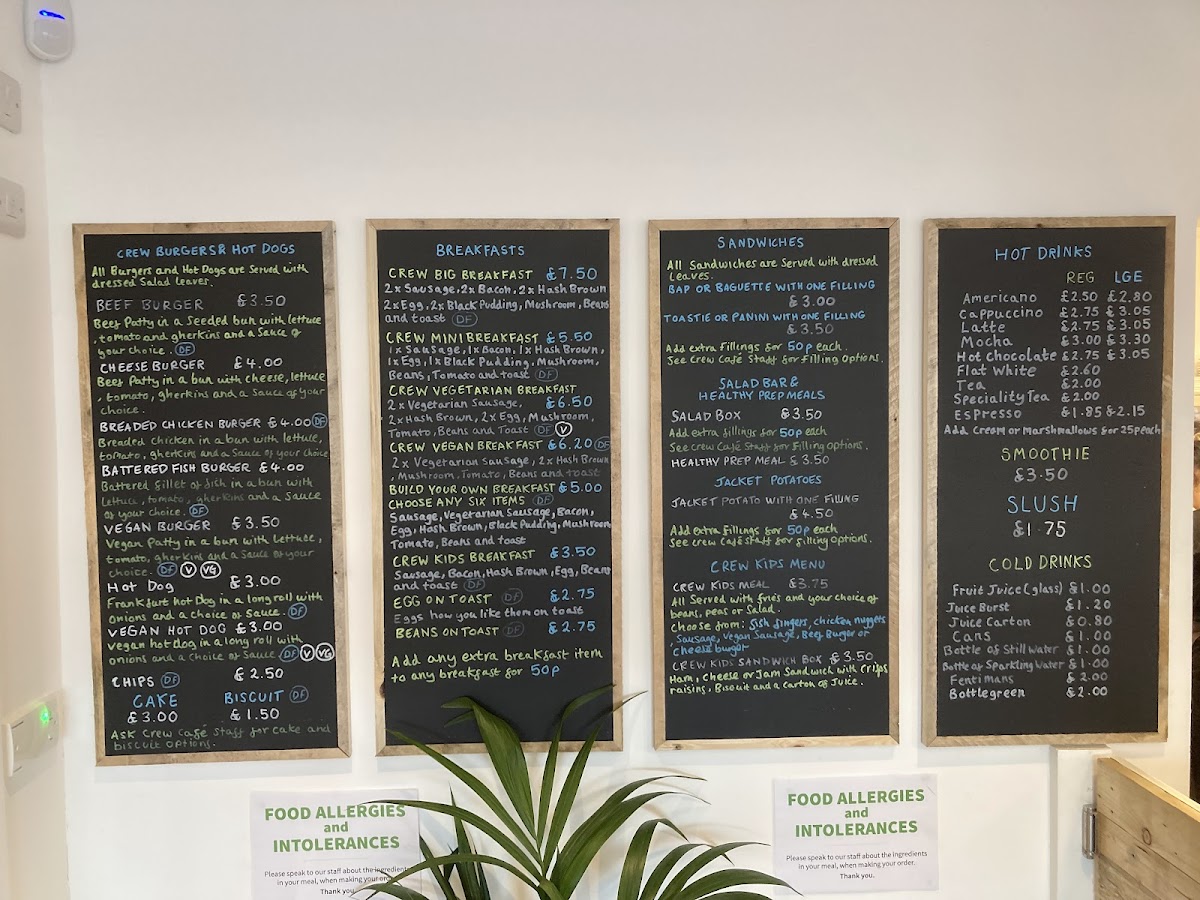 CREW BURGERS & HOT DOGS
All Burgers and Hot Dogs are Served with
dressed Salad leaves.
BEEF BURGER £3.50
Beef Patty in a Seeded bun with lettuce
, tomato and gherkins and a Sauce of
your choice. DF
CHEESE BURGER £4.00
Beef Patty in a bun with cheese, lettuce
, tomato, gherkins and a Sauce of your
choice.
BREADED CHICKEN BURGER £4.00 DF
Breaded chicken in a bun with lettuce,
tomato, gherkins and a Sauce of your choice
BATTERED FISH BURGER £4.00
Battered fillet of fish in a bun with
lettuce, tomato, gherkins and a Sauce
of your choice. DF
VEGAN BURGER £3.50
Vegan Patty in a bun with lettuce,
tomato, gherkins and a Sauce of your
choice. DF V VG
HOT DOG £3.00
Frankfurt hot Dog in a long roll with
onions and a choice of Sauce. DF
VEGAN HOT DOG £3.00
vegan hot Dog in a long roll with
onions and a choice of Sauce. DF V VG
CHIPS DF £2.50
CAKE BISCUIT DF
£3.00 £1.50
ASK Crew Café Staff for cake and
biscuit options.
BREAKFASTS
CREW BIG BREAKFAST £7.50
2x Sausage, 2x Bacon, 2x Hash Brown
2x Egg, 2x Black Pudding, Mushroom, Beans
and toast DF
CREW MINI BREAKFAST £5.50
1x Sausage, 1x Bacon, 1x Hash Brown,
1x Egg, 1x Black Pudding, Mushroom,
Beans, Tomato and toast DF
CREW VEGETARIAN BREAKFAST
2x Vegetarian Sausage, £6.50
2x Hash Brown, 2x Egg, Mushroom,
Tomato, Beans and Toast DF V
CREW VEGAN BREAKFAST £6.20 DF
2x Vegetarian Sausage, 2x Hash Brown
, Mushroom, Tomato, Beans and toast
BUILD YOUR OWN BREAKFAST £5.00
CHOOSE ANY SIX ITEMS DF
Sausage, Vegetarian Sausage, Bacon,
Egg, Hash Brown, Black Pudding, Mushroom
Tomato, Beans and toast
CREW KIDS BREAKFAST £3.50
Sausage, Bacon, Hash Brown, Egg, Beans
and toast DF
EGG ON TOAST DF £2.75
Eggs how you like them on toast
BEANS ON TOAST DF £2.75
Add any extra breakfast item
to any breakfast for 50p
SANDWICHES
All Sandwiches are Served with dressed
Leaves.
BAP OR BAGUETTE WITH ONE FILLING
£3.00
TOASTIE OR PANINI WITH ONE FILLING
£3.50
Add extra fillings for 50p each.
See crew Café Staff for filling Options.
SALAD BAR &
HEALTHY PREP MEALS
SALAD BOX £3.50
Add extra fillings for 50p each
See crew Café Staff for filling Options.
HEALTHY PREP MEAL £3.50
JACKET POTATOES
JACKET POTATO WITH ONE FILLING
£4.50
Add extra fillings for 50p each.
See crew Café Staff for filling Options.
CREW KIDS MENU
CREW KIDS MEAL £3.75
All Served with fries and your choice of
beans, peas or Salad.
Choose from: fish fingers, chicken nuggets
Sausage, Vegan Sausage, Beef Burger or
cheese burger
CREW KIDS SANDWICH BOX £3.50
Ham, cheese or Jam Sandwich with Crisps
raisins, Biscuit and a Carton of Juice.
HOT DRINKS
REG LGE
Americano £2.50 £2.80
Cappuccino £2.75 £3.05
Latte £2.75 £3.05
Mocha £3.00 £3.30
Hot chocolate £2.75 £3.05
Flat White £2.60
Tea £2.00
Speciality Tea £2.00
Espresso £1.85 £2.15
Add Cream or Marshmallows for 25p each
SMOOTHIE
£3.50
SLUSH
£1.75
COLD DRINKS
Fruit Juice (glass) £1.00
Juice Burst £1.20
Juice Carton £0.80
Cans £1.00
Bottle of Still Water £1.00
Bottle of Sparkling Water £1.00
Fentimans £2.00
Bottlegreen £2.00
FOOD ALLERGIES
and
INTOLERANCES
Please speak to our staff about the ingredients
in your meal, when making your order.
Thank you.
FOOD ALLERGIES
and
INTOLERANCES
Please speak to our staff about the ingredients
in your meal, when making your order.
Thank you.